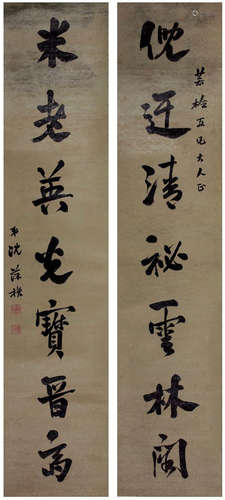 倪迂清祕雲林閣
五兄大人正
米老英光寶晉齋
弟沈葆楨